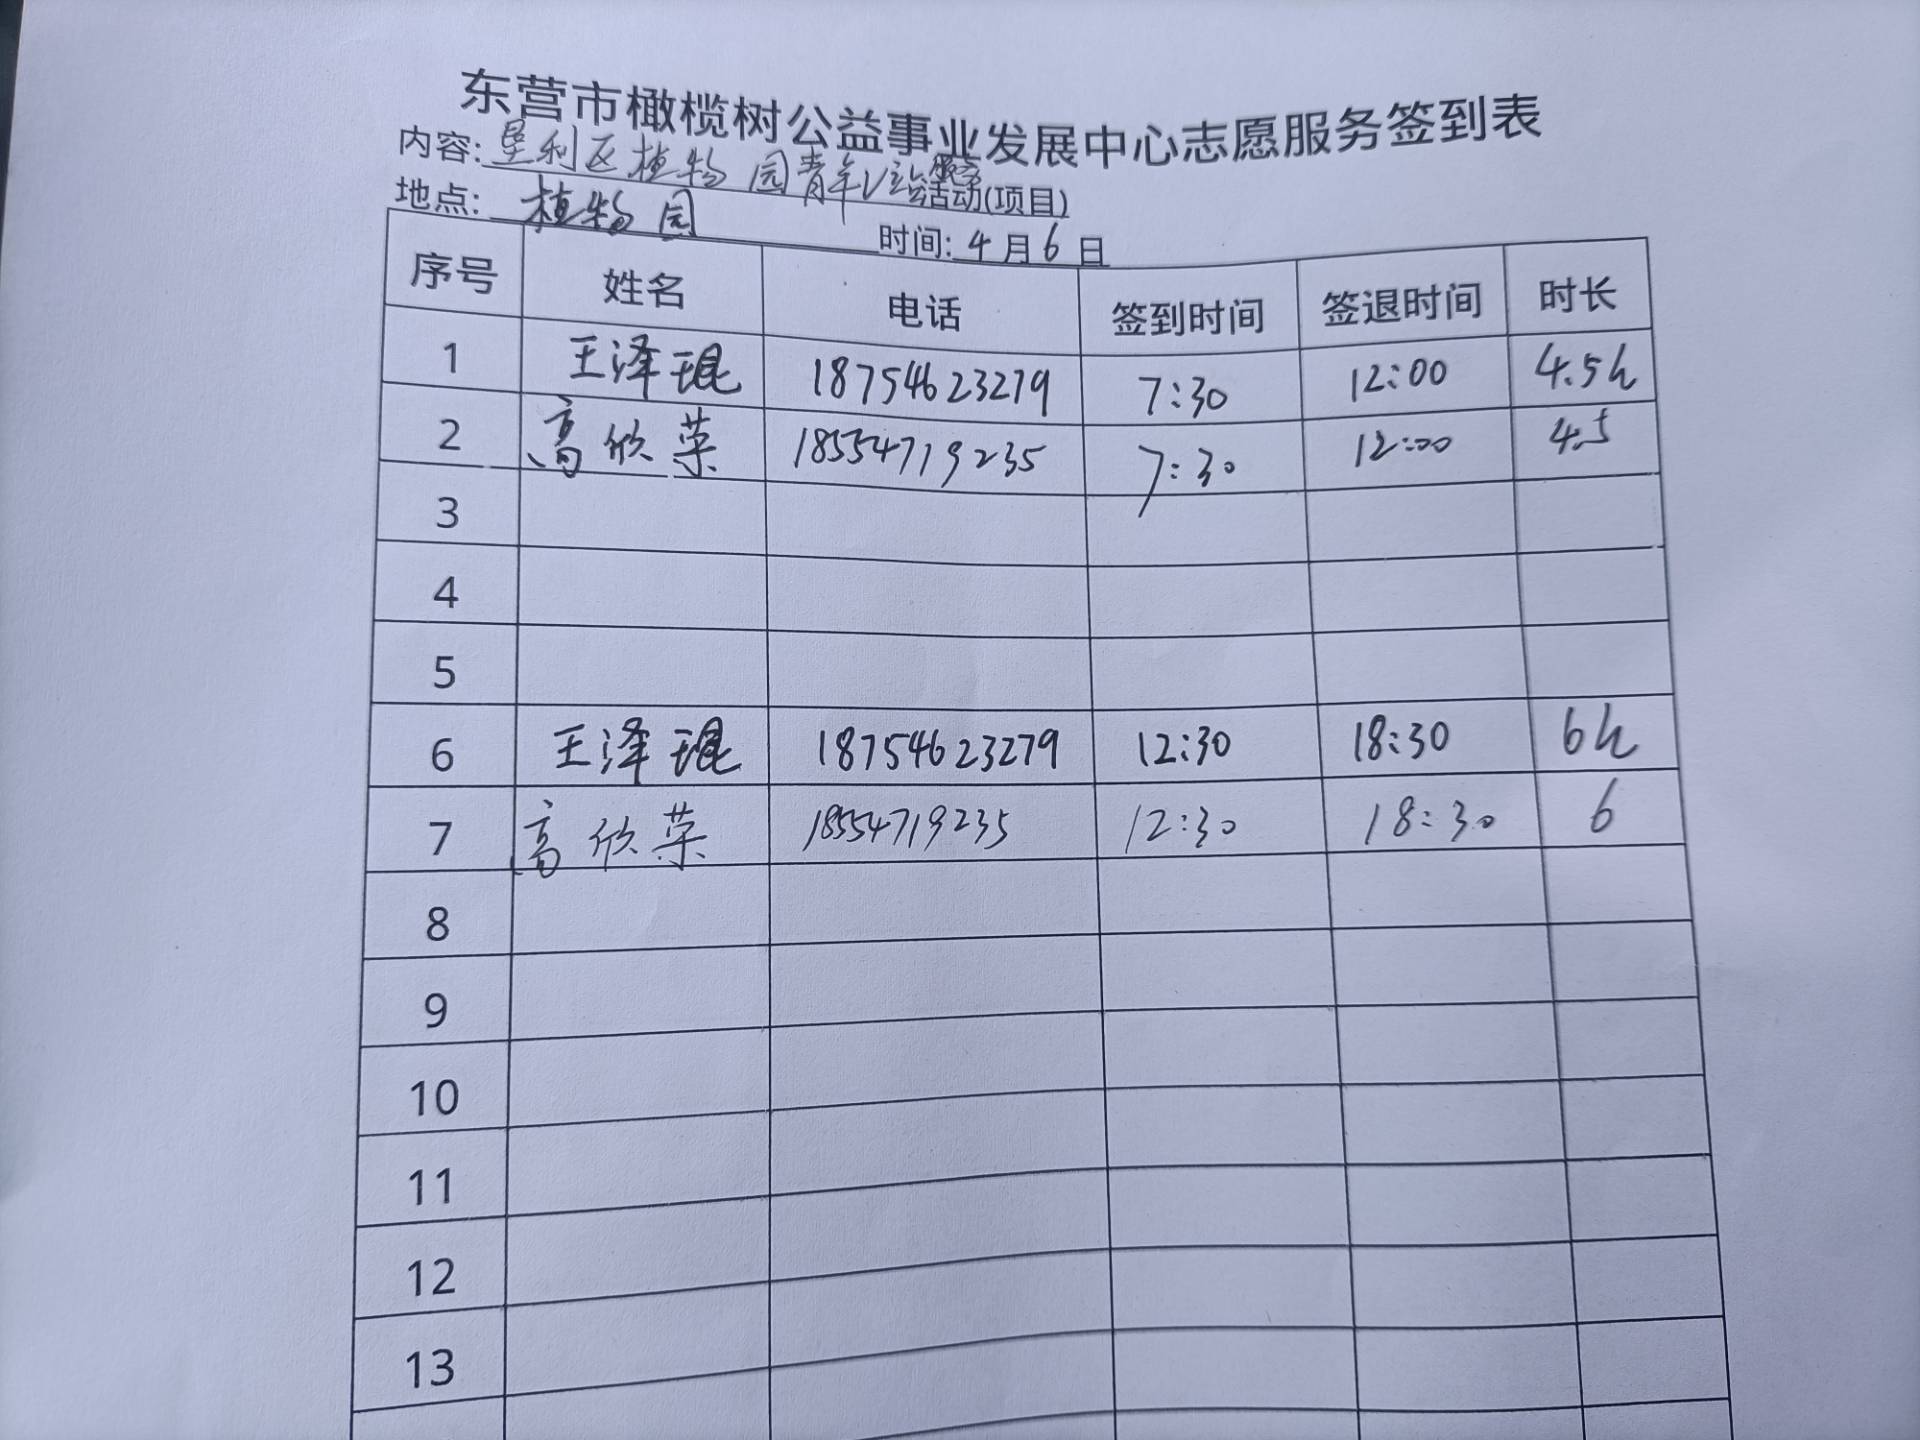 东营市橄榄树公益事业发展中心志愿服务签到表
内容: 垦利区植物园青年V站服务活动(项目)
地点: 植物园
时间: 4月6日
序号 姓名 电话 签到时间 签退时间 时长
1 王泽琨 18754623279 7:30 12:00 4.5h
2 高欣荣 18554719235 7:30 12:00 4.5
3
4
5
6 王泽琨 18754623279 12:30 18:30 6h
7 高欣荣 18554719235 12:30 18:30 6
8
9
10
11
12
13